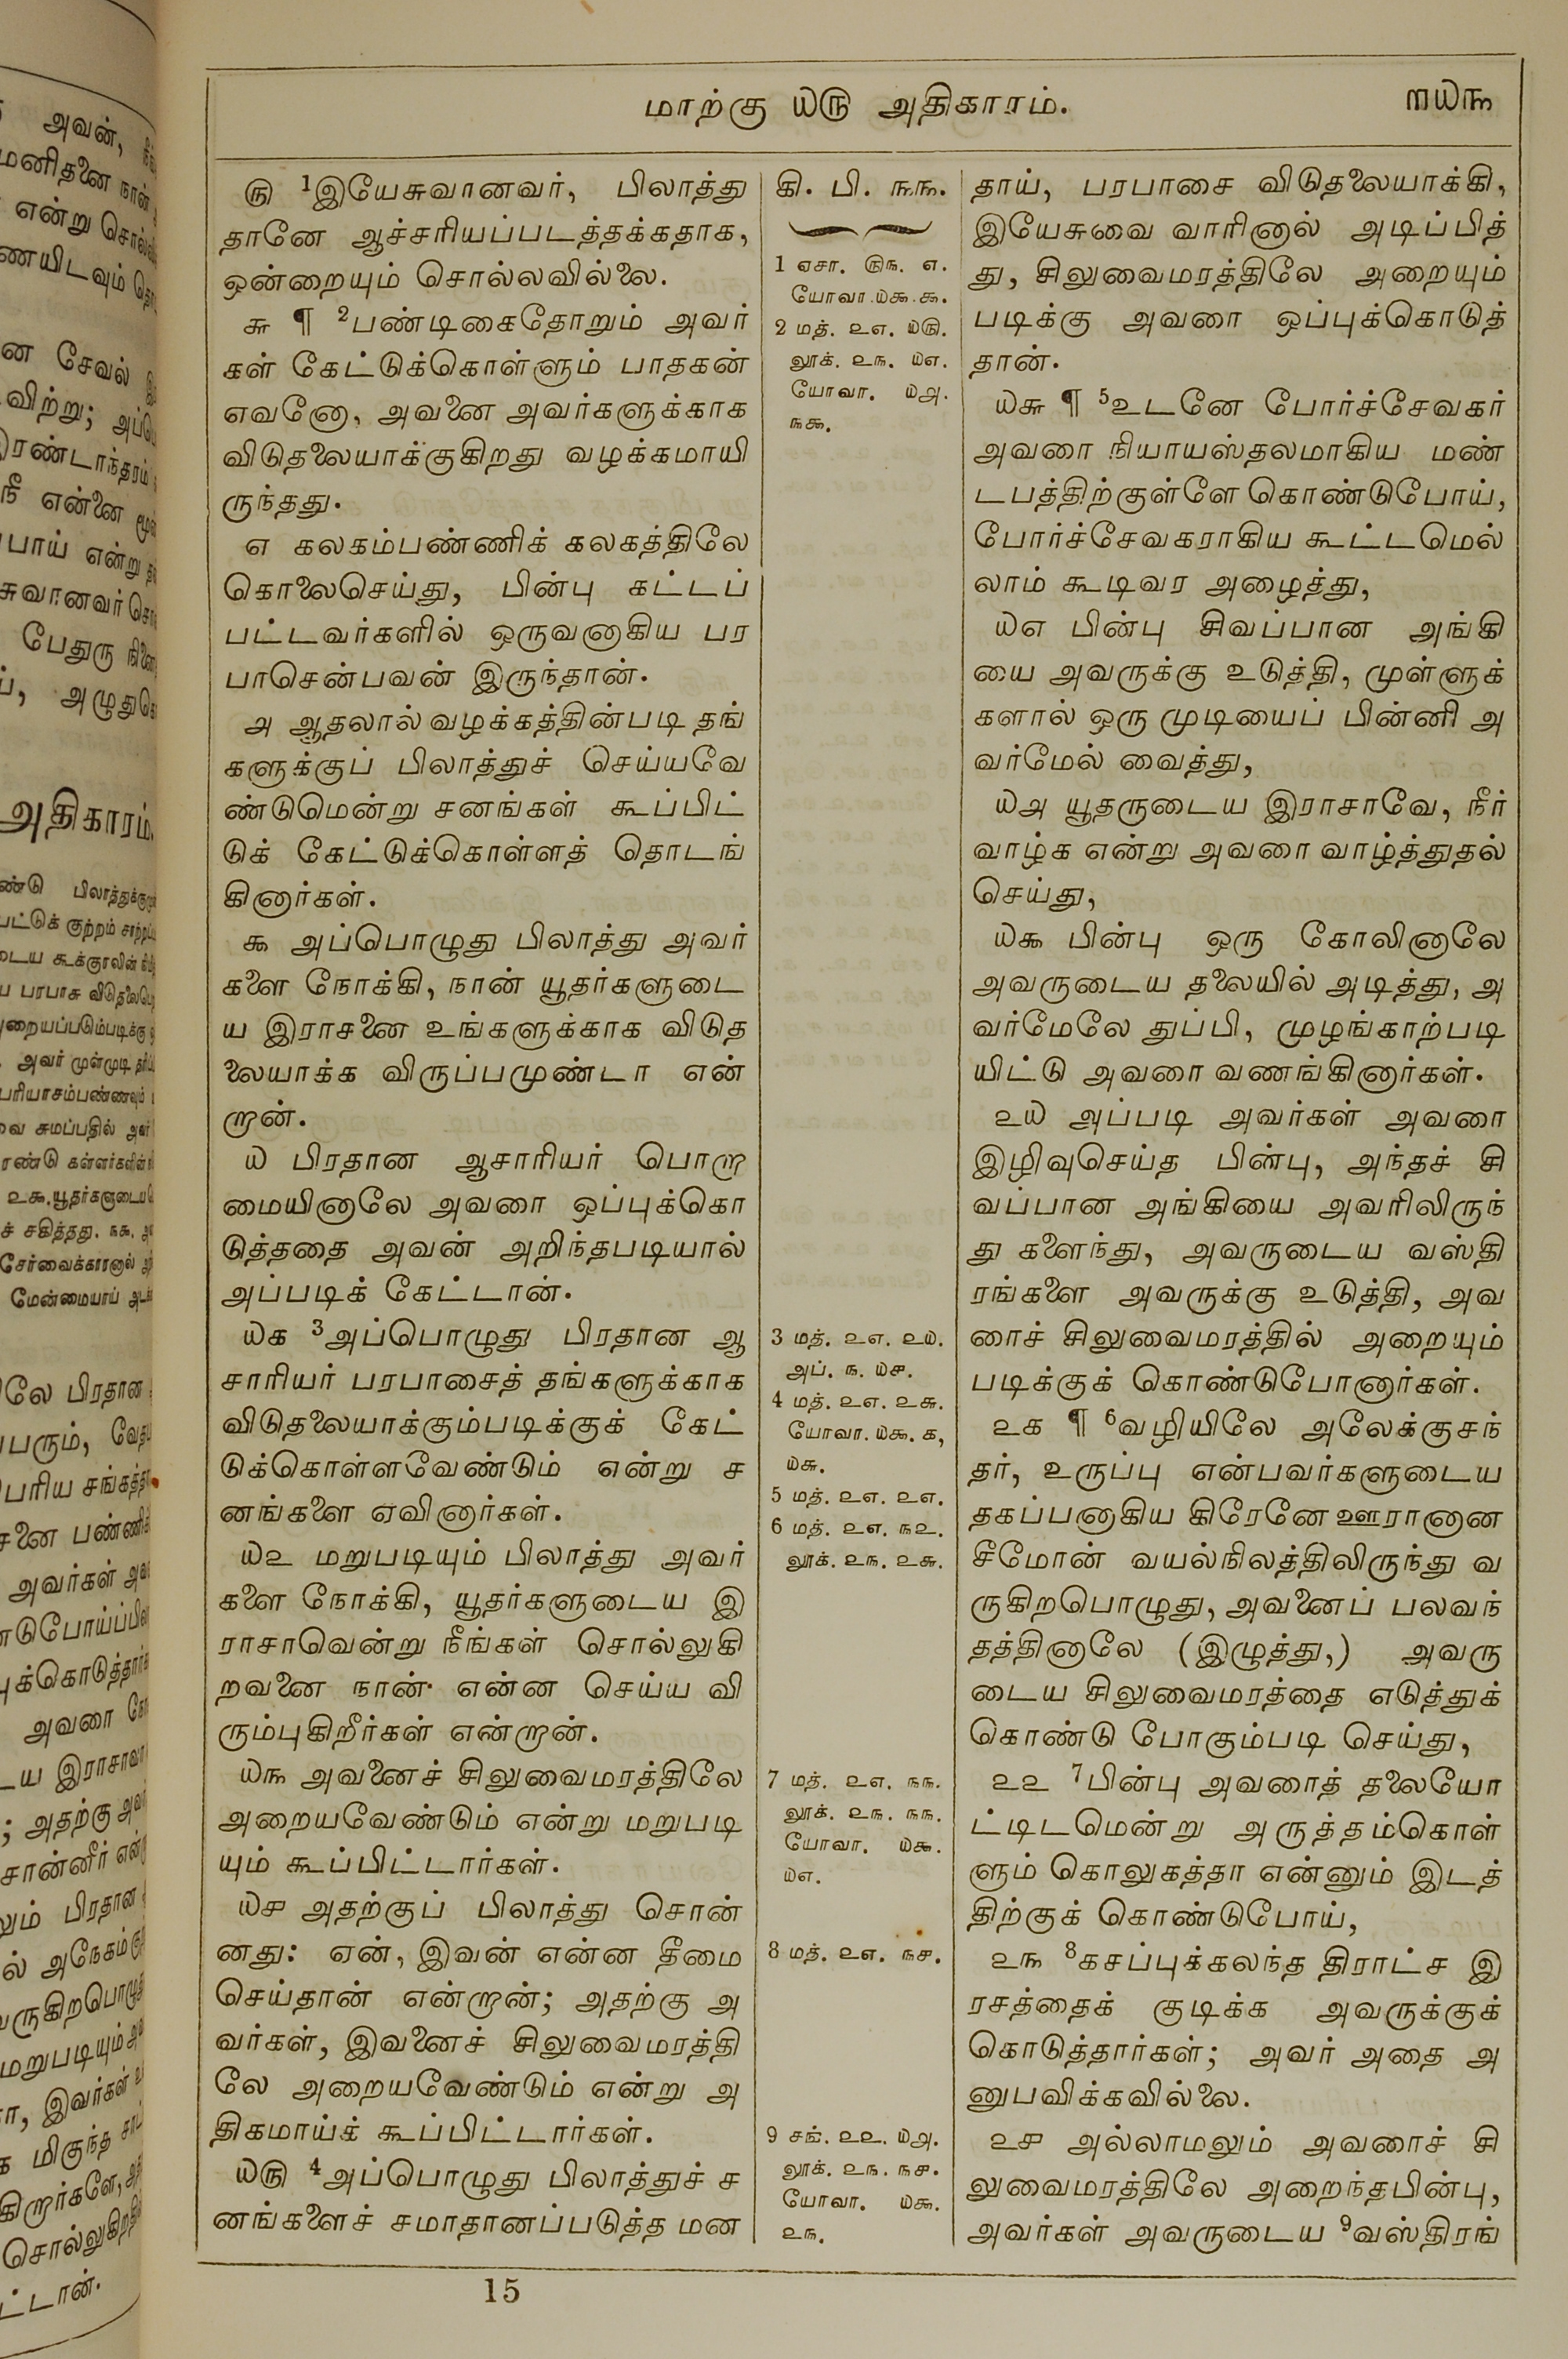 மாற்கு ௰௫ அதிகாரம்.
௱௰௩
௫ 1இயேசுவானவர், பிலாத்து
தானே ஆச்சரியப்படத்தக்கதாக,
ஒன்றையும் சொல்லவில்லை.
௬ ¶ 2பண்டிகைதோறும் அவர்
கள் கேட்டுக்கொள்ளும் பாதகன்
எவனோ, அவனை அவர்களுக்காக
விடுதலையாக்குகிறது வழக்கமாயி
ருந்தது.
௭ கலகம்பண்ணிக் கலகத்திலே
கொலைசெய்து, பின்பு கட்டப்
பட்டவர்களில் ஒருவனாகிய பர
பாசென்பவன் இருந்தான்.
௮ ஆதலால் வழக்கத்தின்படி தங்
களுக்குப் பிலாத்துச் செய்யவே
ண்டுமென்று சனங்கள் கூப்பிட்
டுக் கேட்டுக்கொள்ளத் தொடங்
கினார்கள்.
௯ அப்பொழுது பிலாத்து அவர்
களை நோக்கி, நான் யூதர்களுடை
ய இராசனை உங்களுக்காக விடுத
லையாக்க விருப்பமுண்டா என்
றான்.
௰ பிரதான ஆசாரியர் பொறா
மையினாலே அவரை ஒப்புக்கொ
டுத்ததை அவன் அறிந்தபடியால்
அப்படிக் கேட்டான்.
௰௧ 3அப்பொழுது பிரதான ஆ
சாரியர் பரபாசைத் தங்களுக்காக
விடுதலையாக்கும்படிக்குக் கேட்
டுக்கொள்ளவேண்டும் என்று ச
னங்களை ஏவினார்கள்.
௰௨ மறுபடியும் பிலாத்து அவர்
களை நோக்கி, யூதர்களுடைய இ
ராசாவென்று நீங்கள் சொல்லுகி
றவனை நான் என்ன செய்ய வி
ரும்புகிறீர்கள் என்றான்.
௰௩ அவனைச் சிலுவைமரத்திலே
அறையவேண்டும் என்று மறுபடி
யும் கூப்பிட்டார்கள்.
௰௪ அதற்குப் பிலாத்து சொன்
னது: ஏன், இவன் என்ன தீமை
செய்தான் என்றான்; அதற்கு அ
வர்கள், இவனைச் சிலுவைமரத்தி
லே அறையவேண்டும் என்று அ
திகமாய்க் கூப்பிட்டார்கள்.
௰௫ 4அப்பொழுது பிலாத்துச் ச
னங்களைச் சமாதானப்படுத்த மன
கி. பி. ௩௩.
1 ஏசா. ௫௩. ௭.
யோவா. ௰௯. ௯.
2 மத். ௨௭. ௰௫.
லூக். ௨௩. ௰௭.
யோவா. ௰௮.
௩௯.
3 மத். ௨௭. ௨௰.
அப். ௩. ௰௪.
4 மத். ௨௭. ௨௬.
யோவா. ௰௯. ௧,
௰௬.
5 மத். ௨௭. ௨௭.
6 மத். ௨௭. ௩௨.
லூக். ௨௩. ௨௬.
7 மத். ௨௭. ௩௩.
லூக். ௨௩. ௩௩.
யோவா. ௰௯.
௰௭.
8 மத். ௨௭. ௩௪.
9 சங். ௨௨. ௰௮.
லூக். ௨௩. ௩௪.
யோவா. ௰௯.
௨௩.
தாய், பரபாசை விடுதலையாக்கி,
இயேசுவை வாரினால் அடிப்பித்
து, சிலுவைமரத்திலே அறையும்
படிக்கு அவரை ஒப்புக்கொடுத்
தான்.
௰௬ ¶ 5உடனே போர்ச்சேவகர்
அவரை நியாயஸ்தலமாகிய மண்
டபத்திற்குள்ளே கொண்டுபோய்,
போர்ச்சேவகராகிய கூட்டமெல்
லாம் கூடிவர அழைத்து,
௰௭ பின்பு சிவப்பான அங்கி
யை அவருக்கு உடுத்தி, முள்ளுக்
களால் ஒரு முடியைப் பின்னி அ
வர்மேல் வைத்து,
௰௮ யூதருடைய இராசாவே, நீர்
வாழ்க என்று அவரை வாழ்த்துதல்
செய்து,
௰௯ பின்பு ஒரு கோலினாலே
அவருடைய தலையில் அடித்து, அ
வர்மேலே துப்பி, முழங்காற்படி
யிட்டு அவரை வணங்கினார்கள்.
௨௰ அப்படி அவர்கள் அவரை
இழிவுசெய்த பின்பு, அந்தச் சி
வப்பான அங்கியை அவரிலிருந்
து களைந்து, அவருடைய வஸ்தி
ரங்களை அவருக்கு உடுத்தி, அவ
ரைச் சிலுவைமரத்தில் அறையும்
படிக்குக் கொண்டுபோனார்கள்.
௨௧ ¶ 6வழியிலே அலேக்குசந்
தர், உருப்பு என்பவர்களுடைய
தகப்பனாகிய கிரேனே ஊரானான
சீமோன் வயல்நிலத்திலிருந்து வ
ருகிறபொழுது, அவனைப் பலவந்
தத்தினாலே (இழுத்து,) அவரு
டைய சிலுவைமரத்தை எடுத்துக்
கொண்டு போகும்படி செய்து,
௨௨ 7பின்பு அவரைத் தலையோ
ட்டிடமென்று அருத்தம்கொள்
ளும் கொலுகத்தா என்னும் இடத்
திற்குக் கொண்டுபோய்,
௨௩ 8கசப்புக்கலந்த திராட்ச இ
ரசத்தைக் குடிக்க அவருக்குக்
கொடுத்தார்கள்; அவர் அதை அ
னுபவிக்கவில்லை.
௨௪ அல்லாமலும் அவரைச் சி
லுவைமரத்திலே அறைந்தபின்பு,
அவர்கள் அவருடைய 9வஸ்திரங்
15